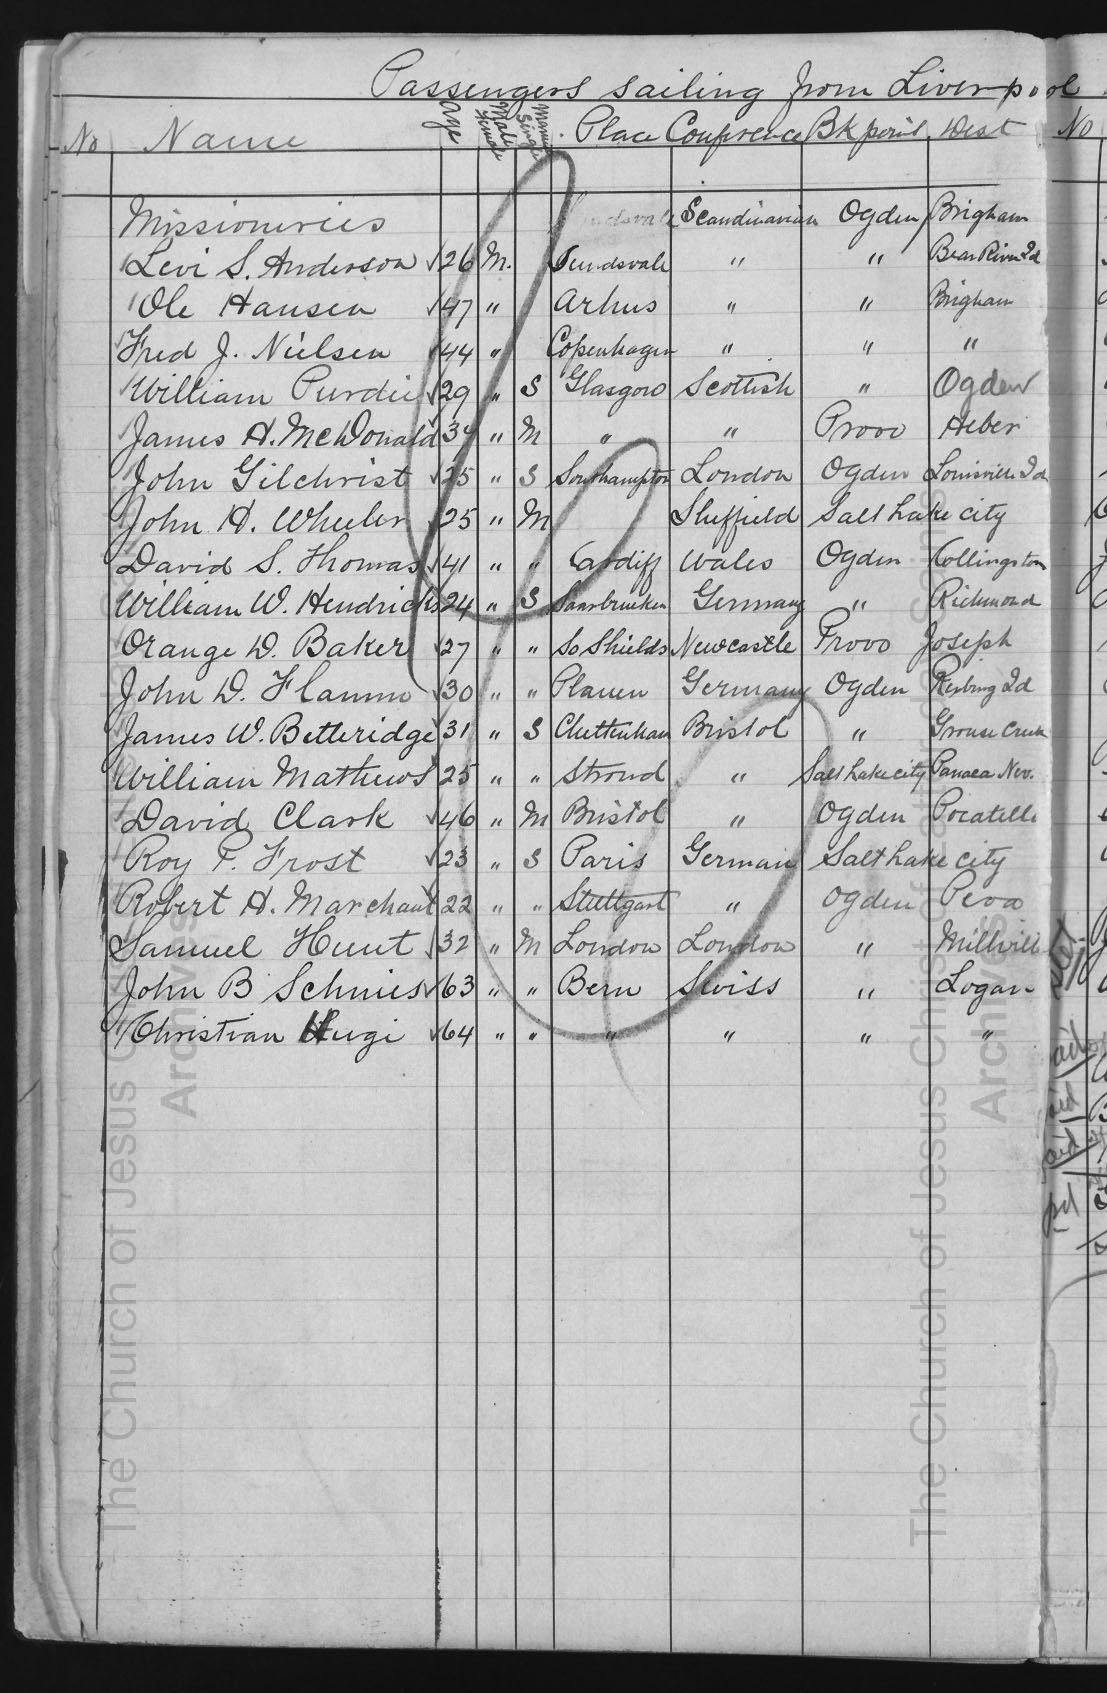 Passengers sailing from Liverpool
No Name Age Male Female Single Married Place Conference Bk point Dest No
Missionaries Scandinavian Ogden Brigham
Levi S. Anderson 26 M. Sundsvale " " Bear River Id
Ole Hansen 47 " Arhus " " Brigham
Fred J. Nielsen 44 " Copenhagen " " "
William Purdie 29 " S Glasgow Scottish " Ogden
James H. McDonald 34 " M " " Provo Heber
John Gilchrist 25 " S Southampton London Ogden Louisville Id
John H. Wheeler 25 " M Sheffield Salt Lake city
David S. Thomas 41 " " Cardiff Wales Ogden Collingston
William W. Hendricks 24 " S Saarbrucken Germany " Richmond
Orange D. Baker 27 " " So Shields Newcastle Provo Joseph
John D. Flamm 30 " " Plauen Germany Ogden Rexburg Id
James W. Betteridge 31 " S Cheltenham Bristol " Grouse Creek
William Mathews 25 " " Stroud " Salt Lake city Panaca Nev.
David Clark 46 " M Bristol " Ogden Pocatello
Roy P. Frost 23 " S Paris German Salt Lake city
Robert H. Marchant 22 " " Stuttgart " Ogden Peoa
Samuel Hunt 32 " M London London " Millville
John B Schiess 63 " " Bern Swiss " Logan
Christian Hugi 64 " " " " " "
The Church of Jesus Christ of Latter-day Saints
Archives
The Church of Jesus Christ of Latter-day Saints
Archives